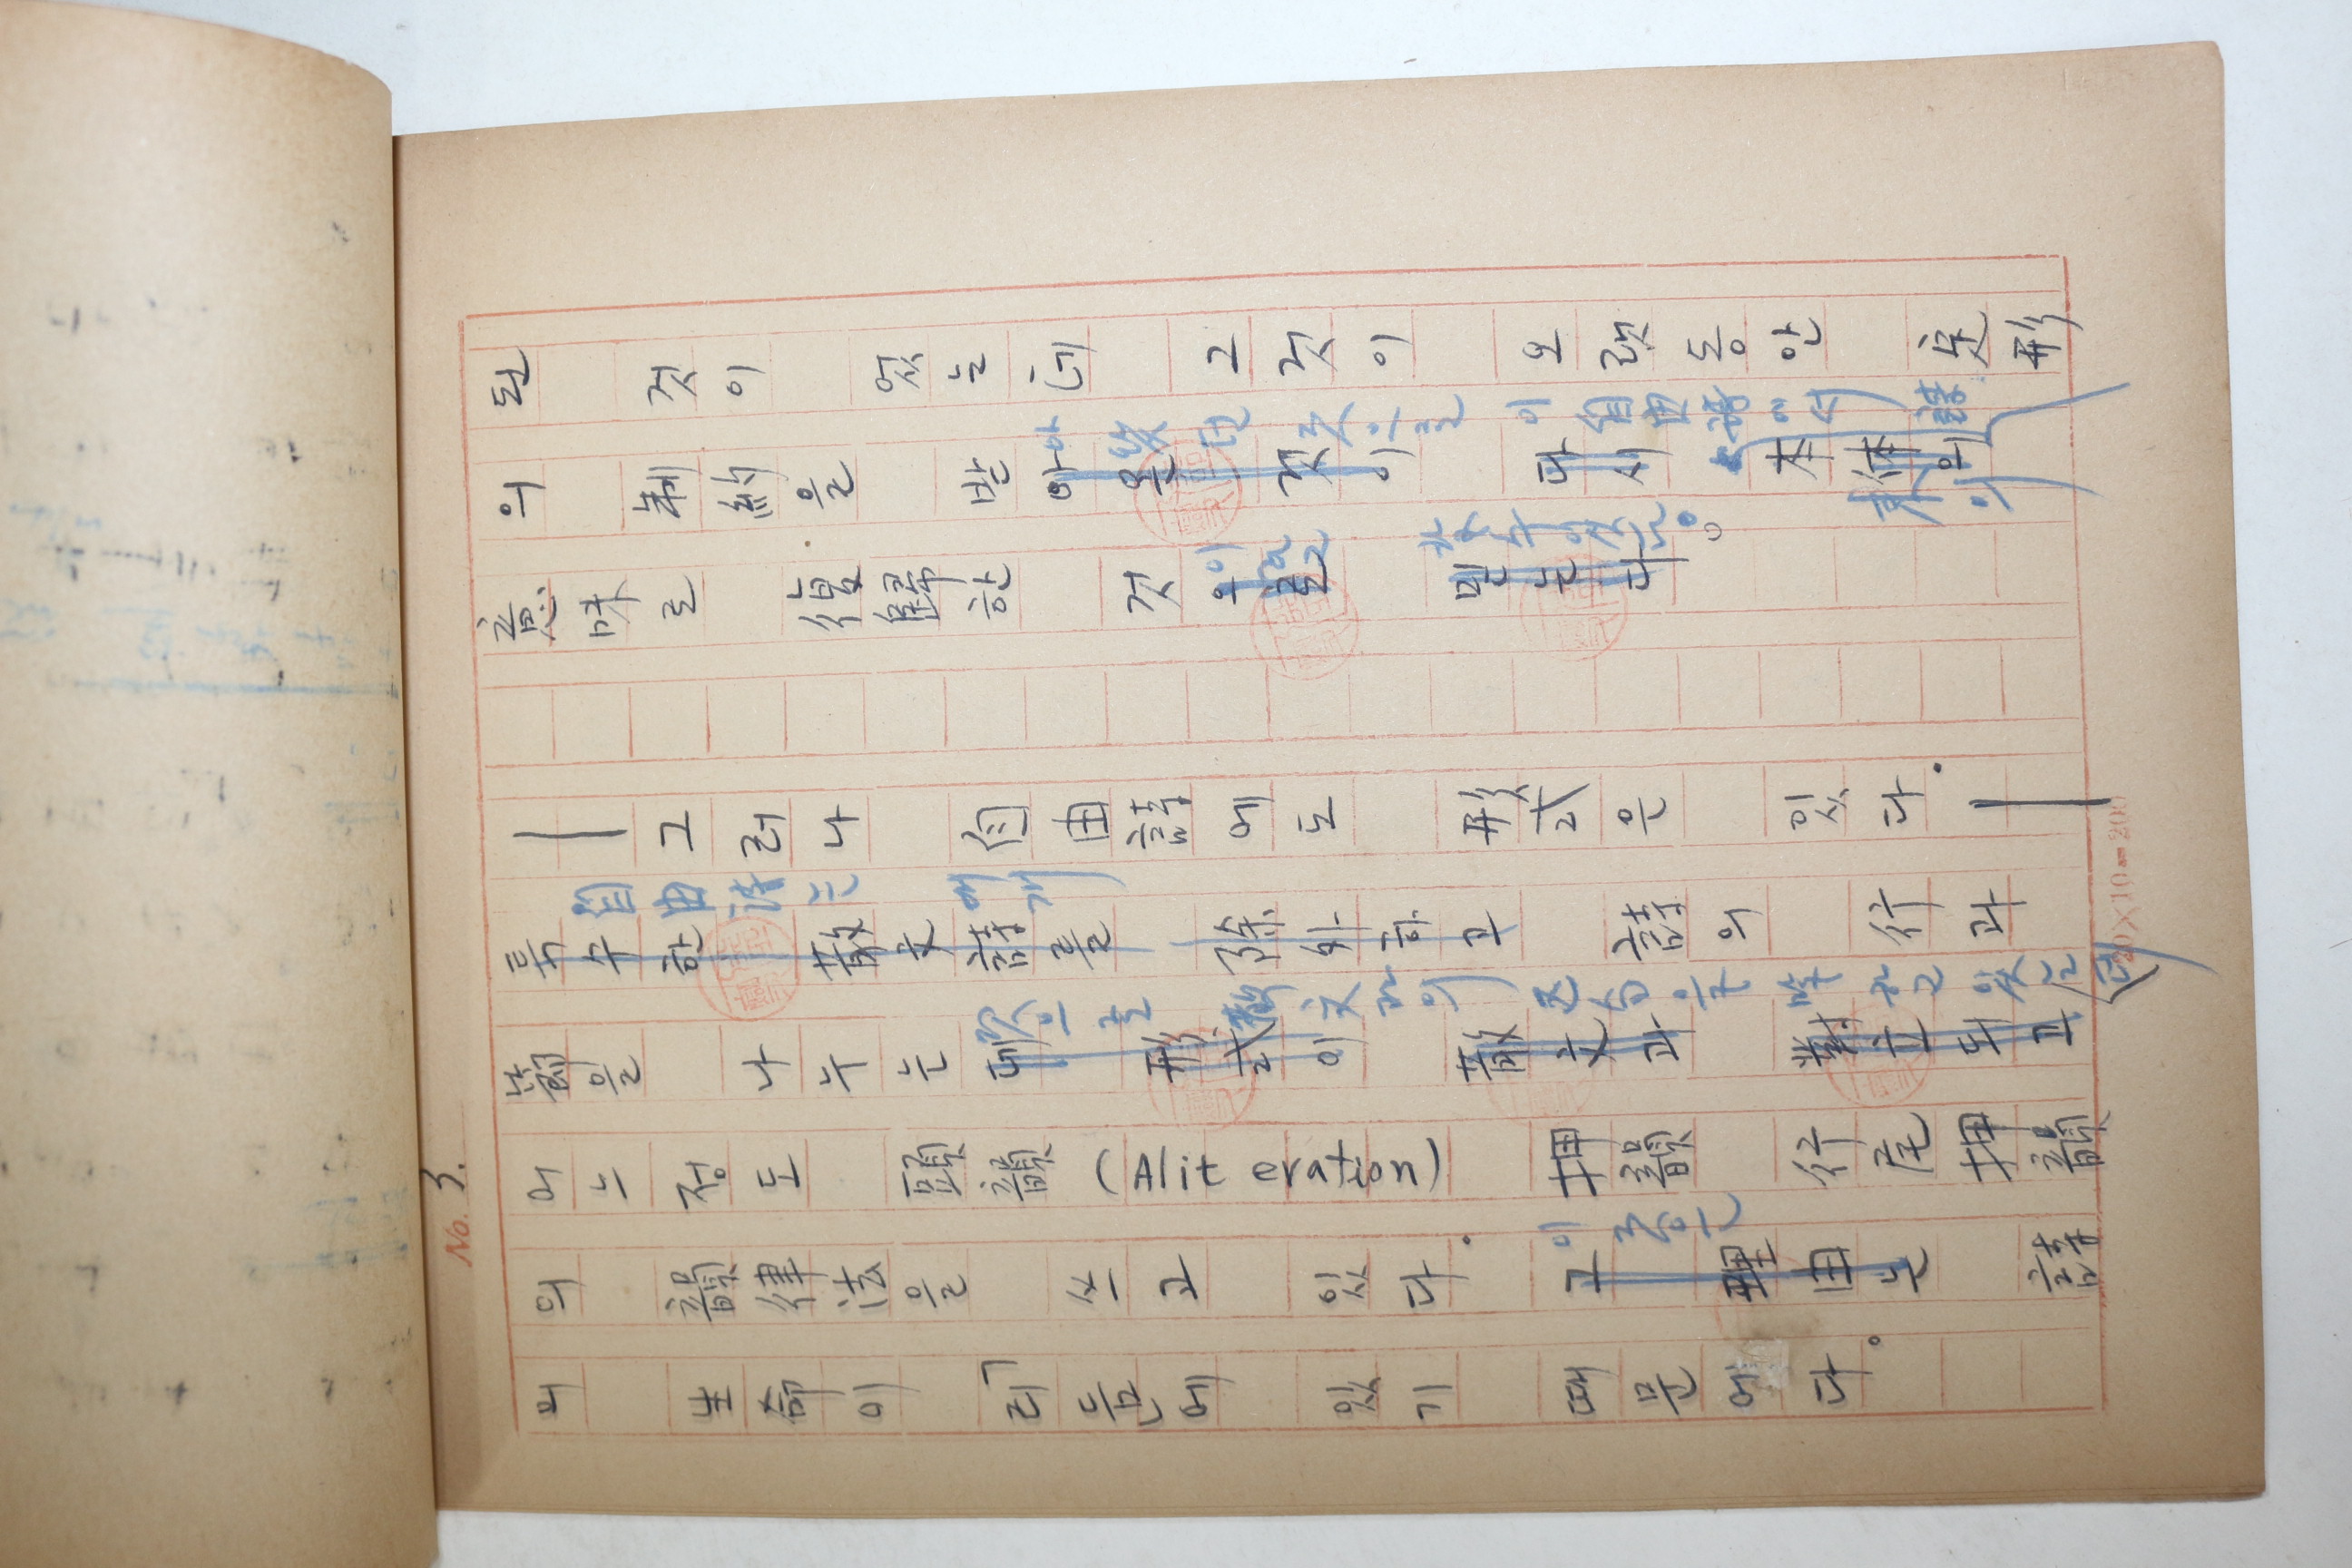 No. 3.
된 것이 었는데 그것이 오랫동안 定形
의 制約을 받아온 것이 다시 本体의
아 왔던 것으로 이 自由詩에서 詩
本來의
意味로 復歸한 것으로 믿는다
이라고 할수있는。
——그러나 自由詩에도 形式은 있다.——
自由詩는 에게
특수한 散文詩를 除外하고 詩의 行과
節을 나누는 形式이 散文과 對立되고
것으로 散文과의 区分을 말하고 있는데
어느정도 頭韻 (Alit eration) 押韻 行尾押韻
의 韻律法을 쓰고 있다. 그 理由는 詩
이것은
의 生命이 「리듬」에 있기 때문에다.
20×10=200